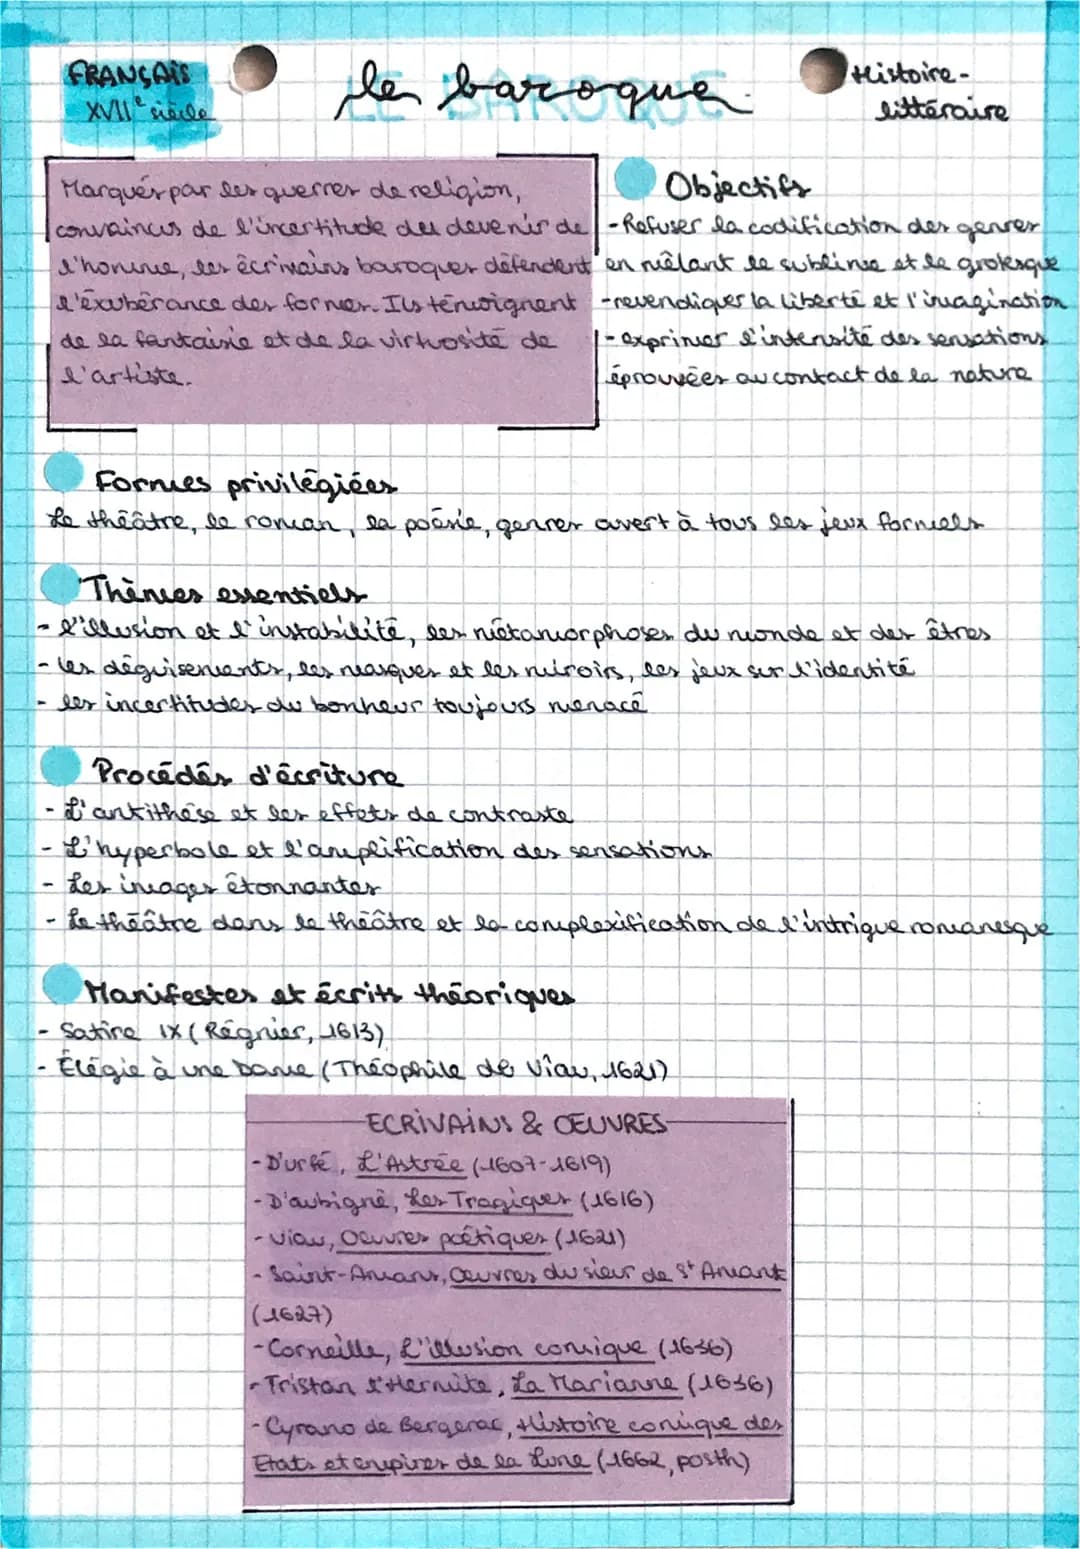 FRANÇAIS
XVIIe siècle
LE BAROQUE
le baroque
Histoire-
littéraire
Marqués par les guerres de religion,
convaincus de l'incertitude du devenir de
l'homme, les écrivains baroques défendent
l'éxubérance des formes. Ils témoignent
de la fantaisie et de la virtuosité de
l'artiste.
Objectifs
- Refuser la codification des genres
en mêlant le sublime et le grotesque
- revendiquer la liberté et l'imagination
- exprimer l'intensité des sensations
éprouvées au contact de la nature
Formes privilégiées
Le théâtre, le roman, la poésie, genres ouvert à tous les jeux formels
Thèmes essentiels
- l'illusion et l'instabilité, les métamorphoses du monde et des êtres
- les déguisements, les masques et les miroirs, les jeux sur l'identité
- les incertitudes du bonheur toujours menacé
Procédés d'écriture
- L'antithèse et les effets de contraste
- L'hyperbole et l'amplification des sensations
- Les images étonnantes
- Le théâtre dans le théâtre et la complexification de l'intrigue romanesque
Manifestes et écrits théoriques
- Satire IX (Régnier, 1613)
- Élégie à une Dame (Théophile de Viau, 1621)
ECRIVAINS & ŒUVRES
- D'urfé, L'Astrée (1607-1619)
- D'aubigné, Les Tragiques (1616)
- Viau, Oeuvres poétiques (1621)
- Saint-Amans, Œuvres du sieur de St Amant
(1627)
- Corneille, L'illusion comique (1636)
- Tristan l'Hermite, La Marianne (1636)
- Cyrano de Bergerac, Histoire comique des
Etats et empires de la Lune (1662, posth)